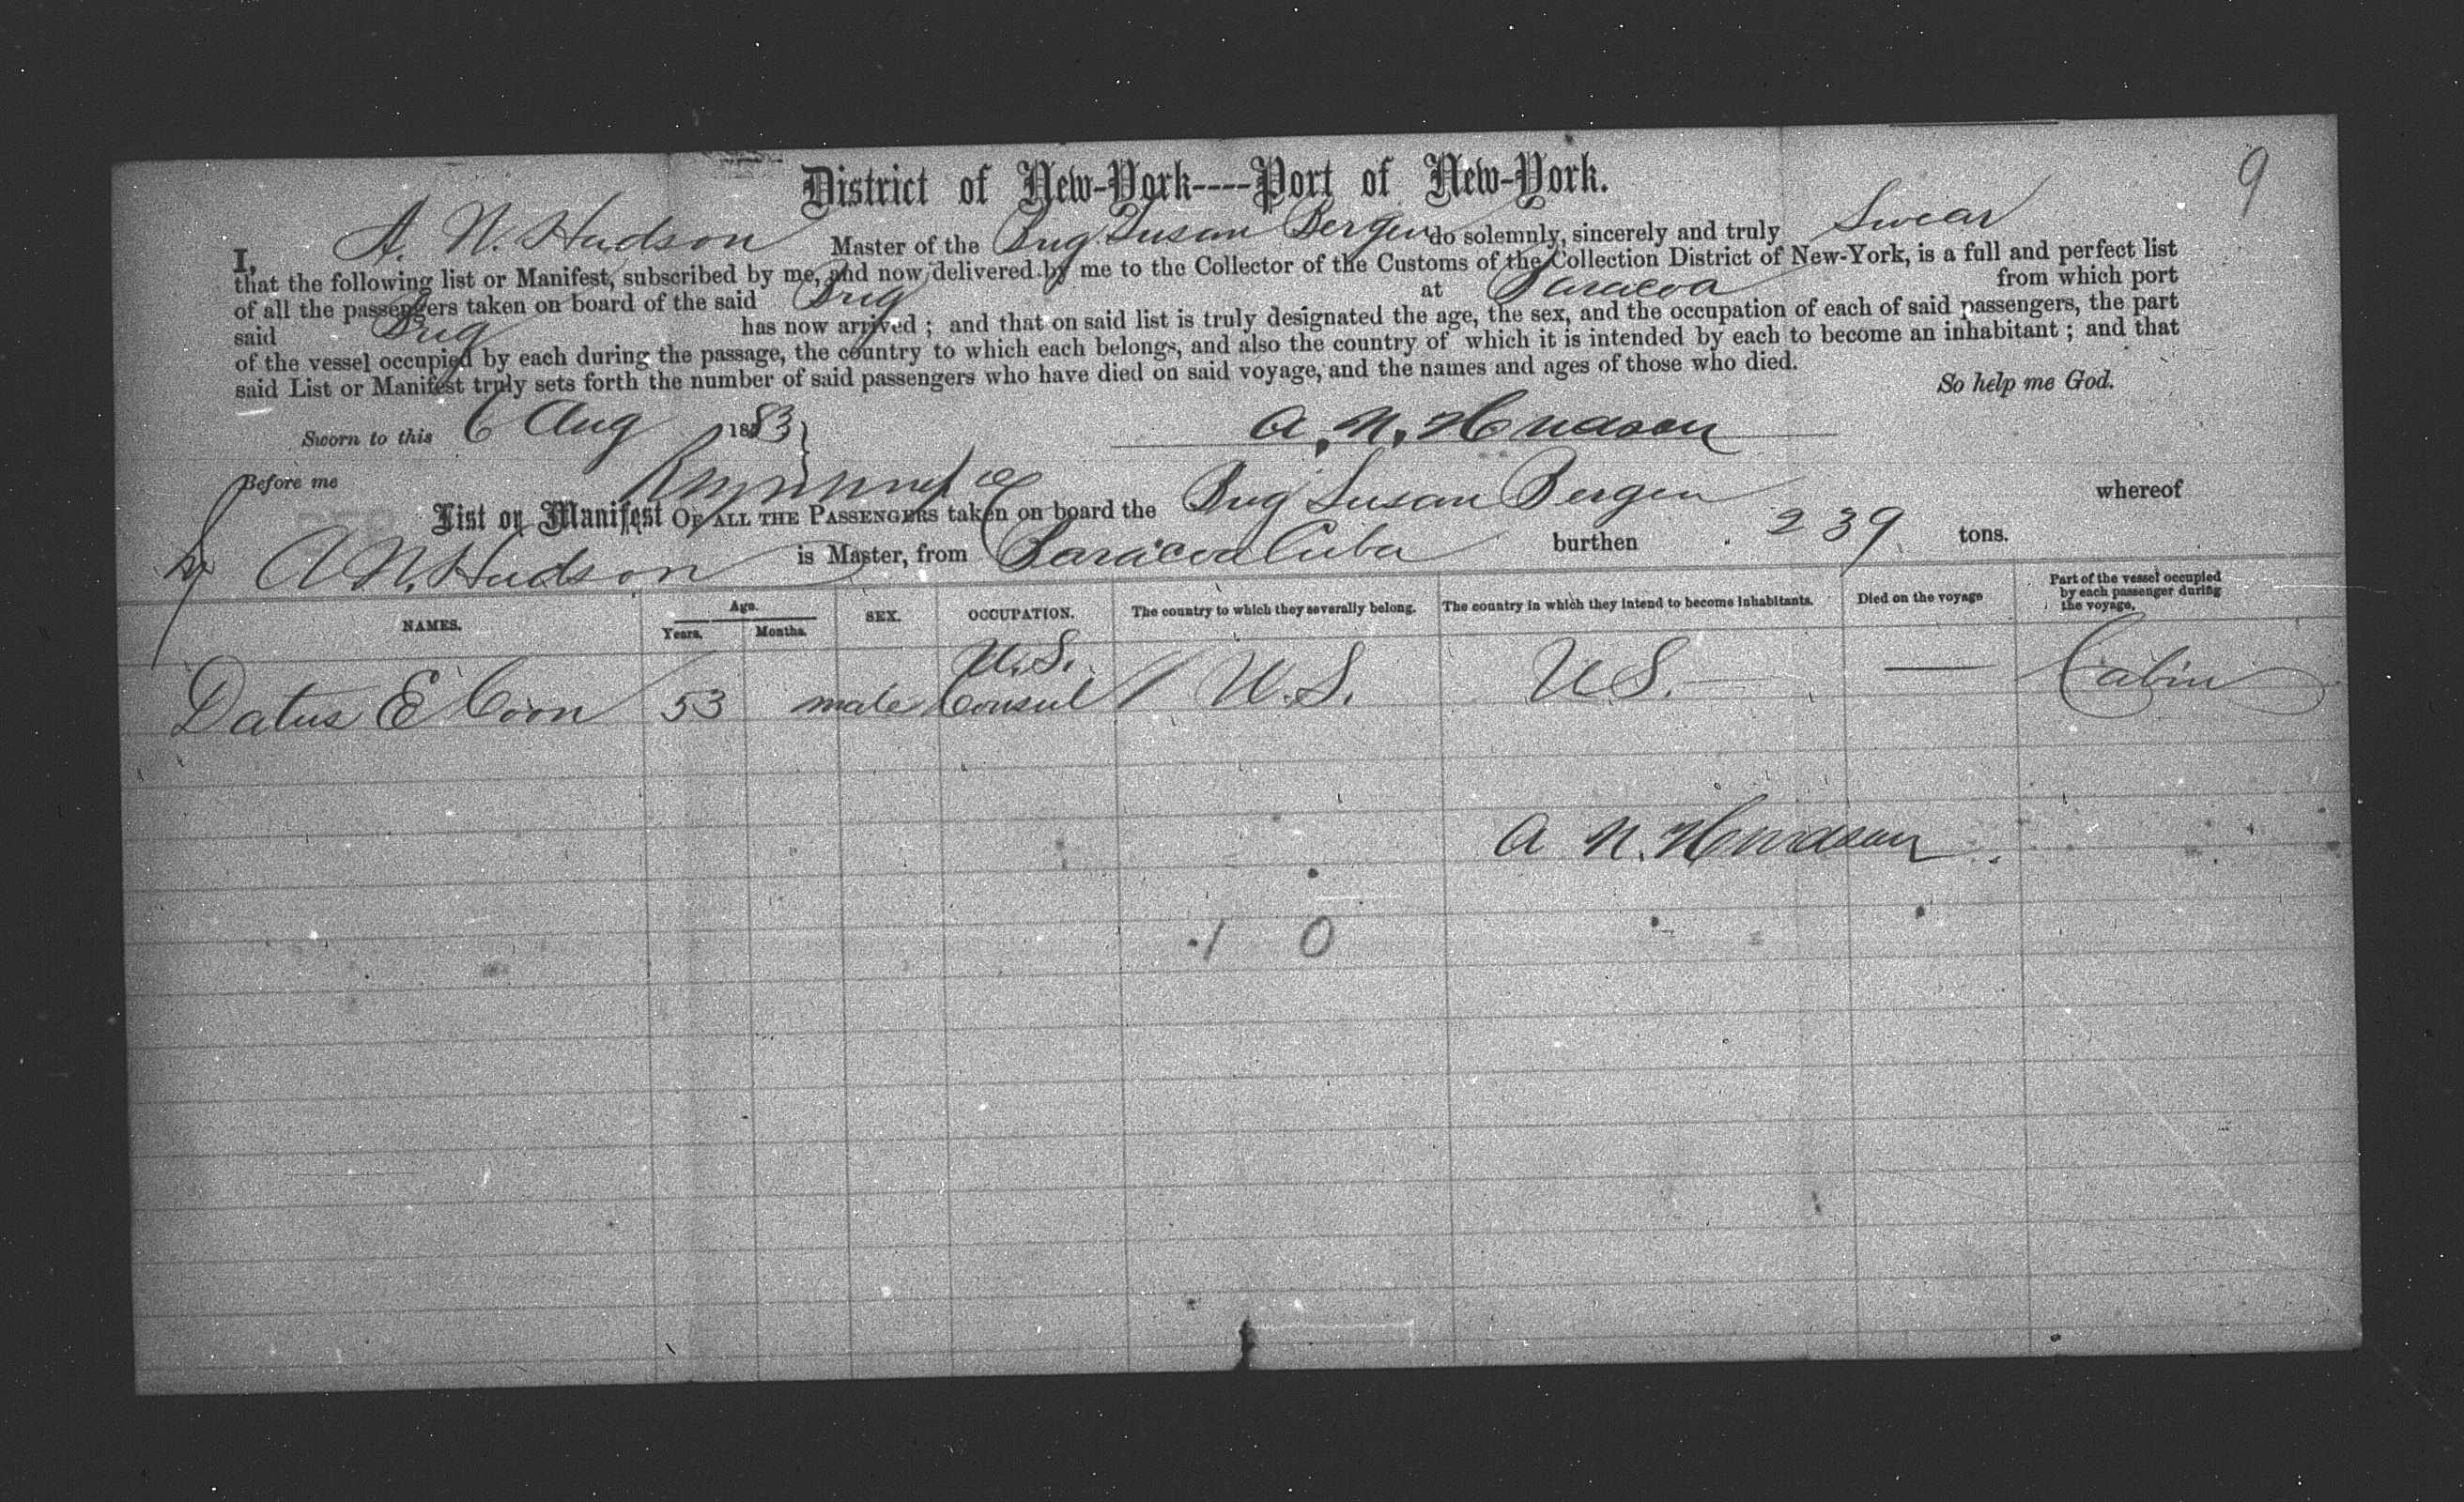 9
District of New-York----Port of New-York.
I, A. N. Hudson Master of the Brig Susan Bergen do solemnly, sincerely and truly Swear
that the following list or Manifest, subscribed by me, and now delivered by me to the Collector of the Customs of the Collection District of New-York, is a full and perfect list
of all the passengers taken on board of the said Brig at Baracoa from which port
said Brig has now arrived ; and that on said list is truly designated the age, the sex, and the occupation of each of said passengers, the part
of the vessel occupied by each during the passage, the country to which each belongs, and also the country of which it is intended by each to become an inhabitant ; and that
said List or Manifest truly sets forth the number of said passengers who have died on said voyage, and the names and ages of those who died.
So help me God.
Sworn to this 6 Aug 1883 A. N. Hudson
Before me
List or Manifest OF ALL THE PASSENGERS taken on board the Brig Susan Bergen whereof
A N. Hudson is Master, from Baracoa Cuba burthen 239 tons.
NAMES. Age. Years. Months. SEX. OCCUPATION. The country to which they severally belong. The country in which they intend to become inhabitants. Died on the voyage Part of the vessel occupied by each passenger during the voyage.
Datus E Coon 53 male U.S. Consul / U.S. U S. — Cabin
A N. Hudson
1 0